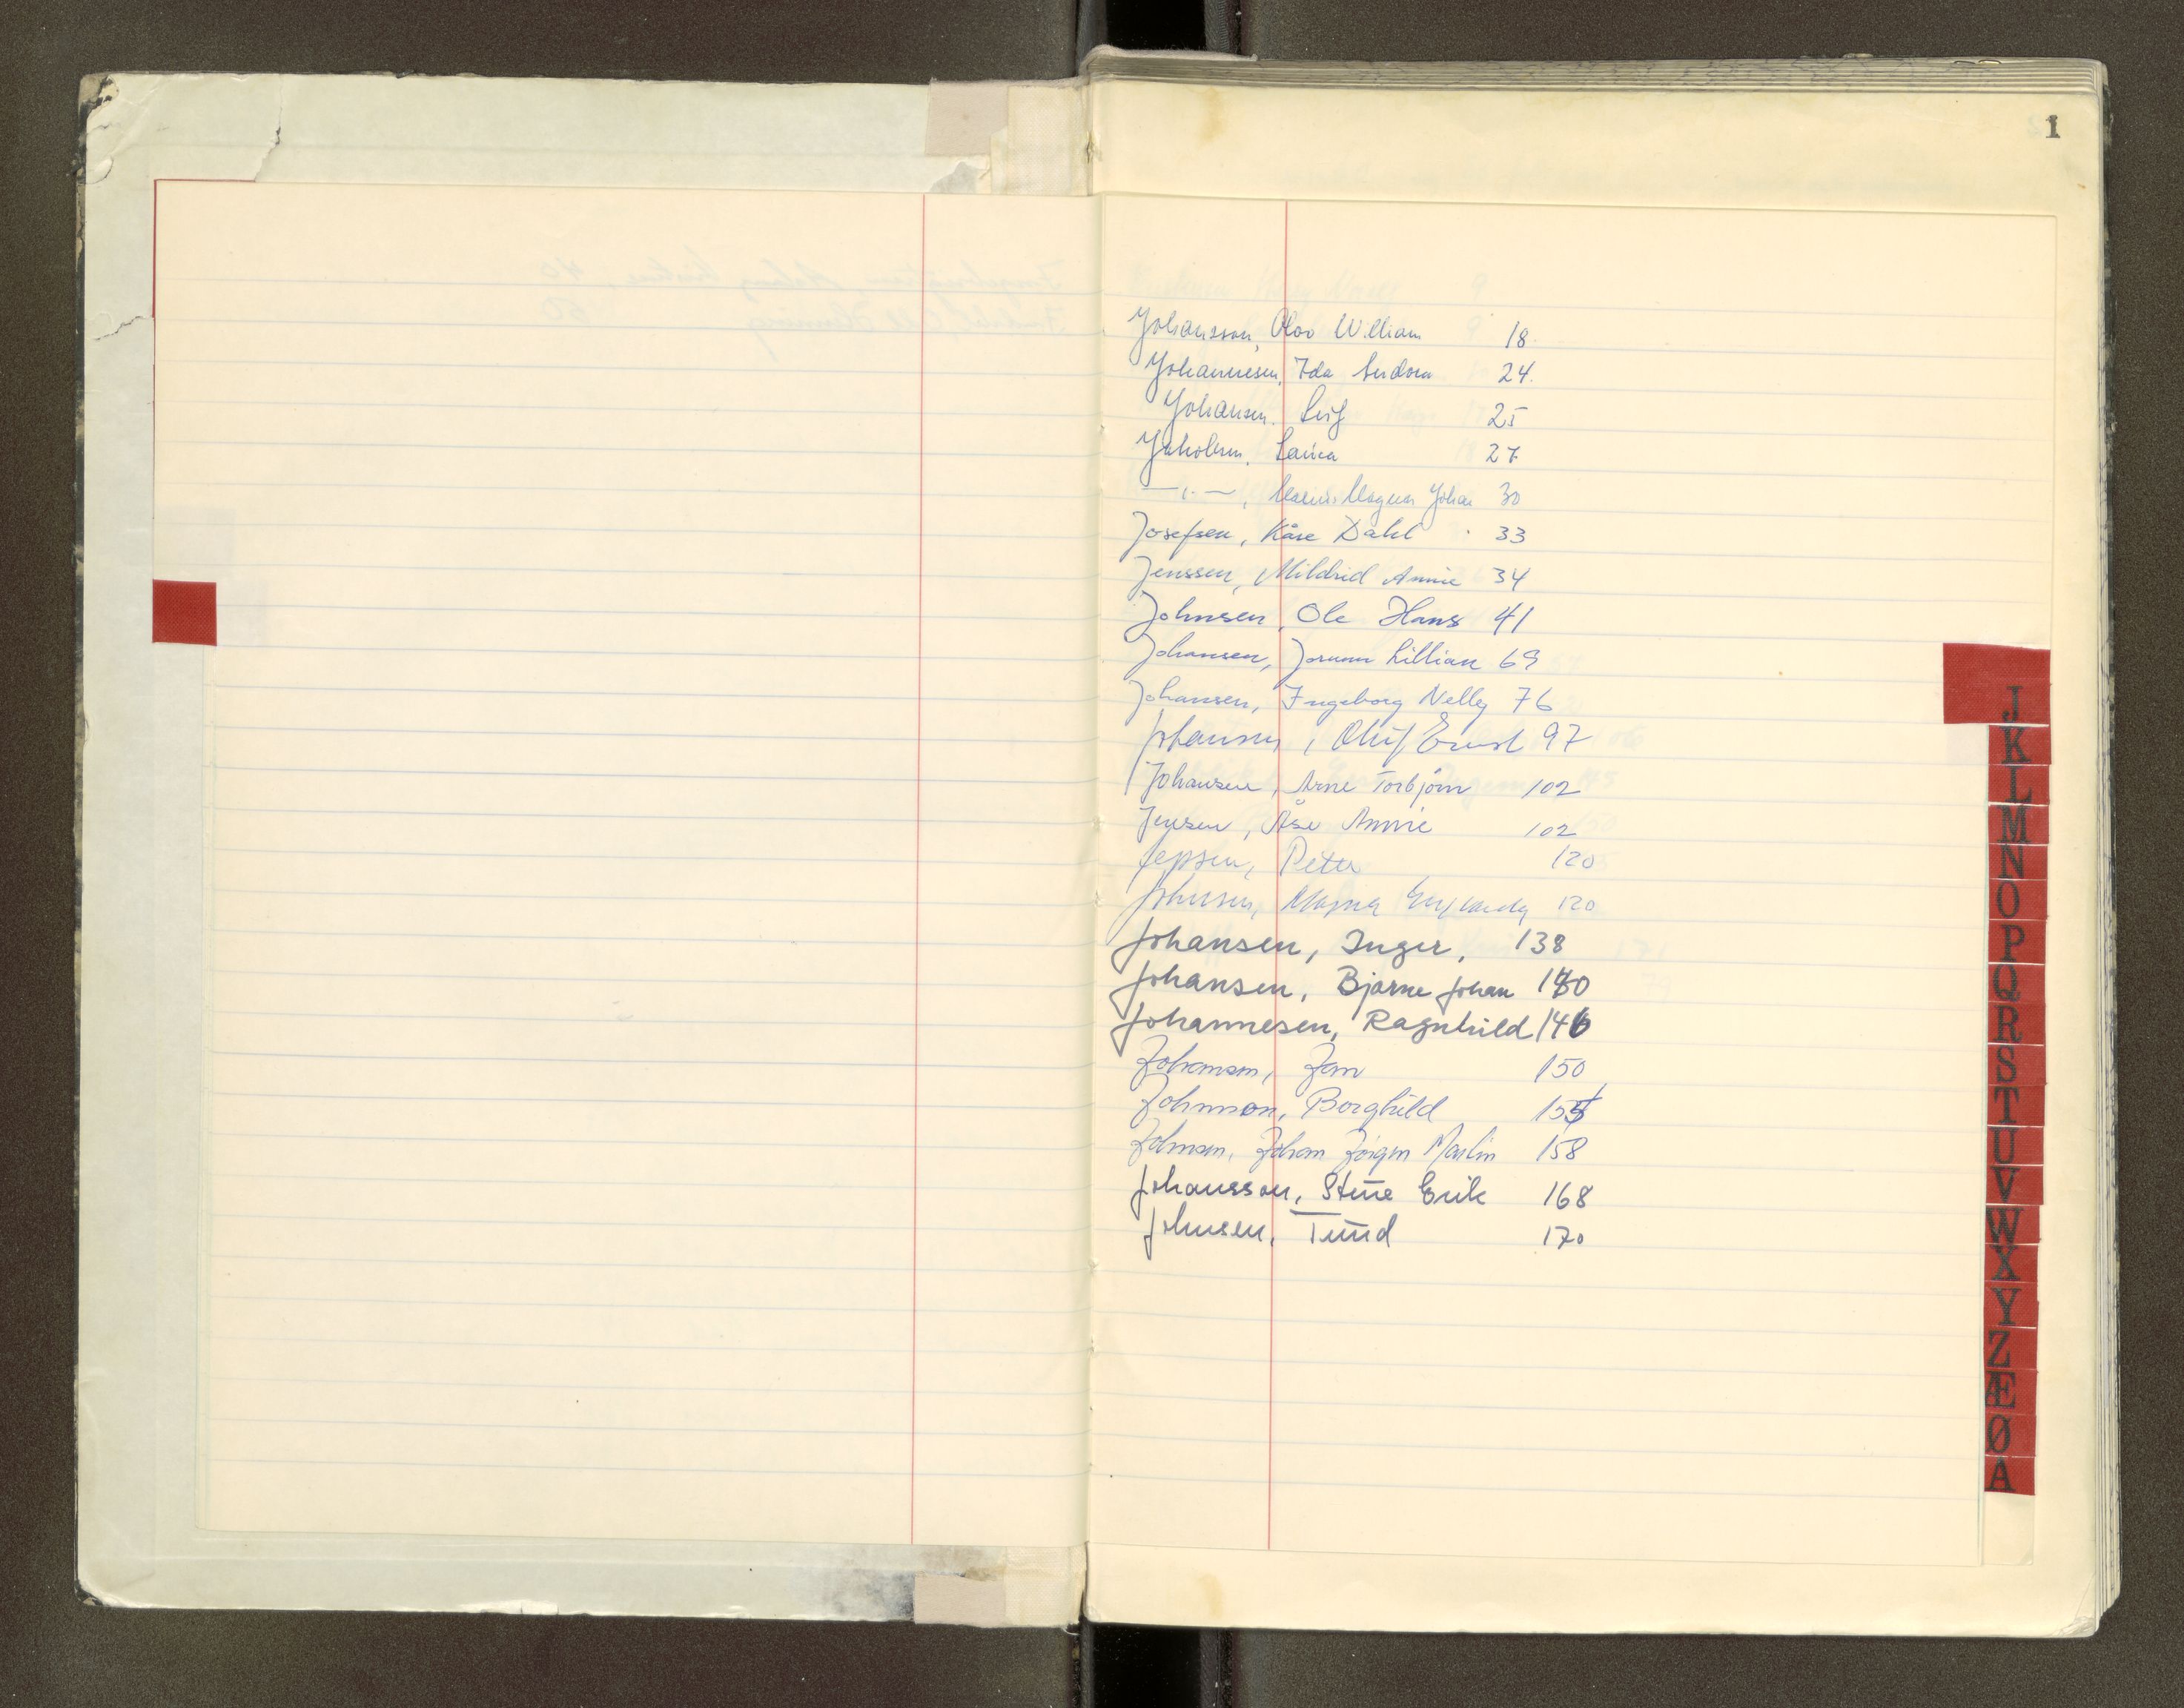 1
Johansson, Olav William 18.
Johannesen, Ida 24.
Johansen. Leif 25
Jakobsen. Laura 27
—〃—, Magnus Johan 30
Josefsen, Kåre Dahl 33
Jenssen, Mildrid Annie 34
Johnsen, Ole Hans 41
Johansen, Jorunn Lillian 69
Johansen, Ingeborg Nelly 76
Johansen, Oluf Ernst 97
Johansen, Arne Torbjörn 102
Jensen, Åse Annie 102
Jepsen, Peter 120
Johnsen, Magna 120
Johansen, Inger, 138
Johansen, Bjarne Johan 140
Johannesen, Ragnhild 146
Johansen, Jan 150
Johnson, Borghild 155
Johnsen, Johan Jørgen Martin 158
Johansson, Sture Erik 168
Johnsen, Turid 170
J
K
L
M
N
O
P
Q
R
S
T
U
V
W
X
Y
Z
Æ
Ø
A